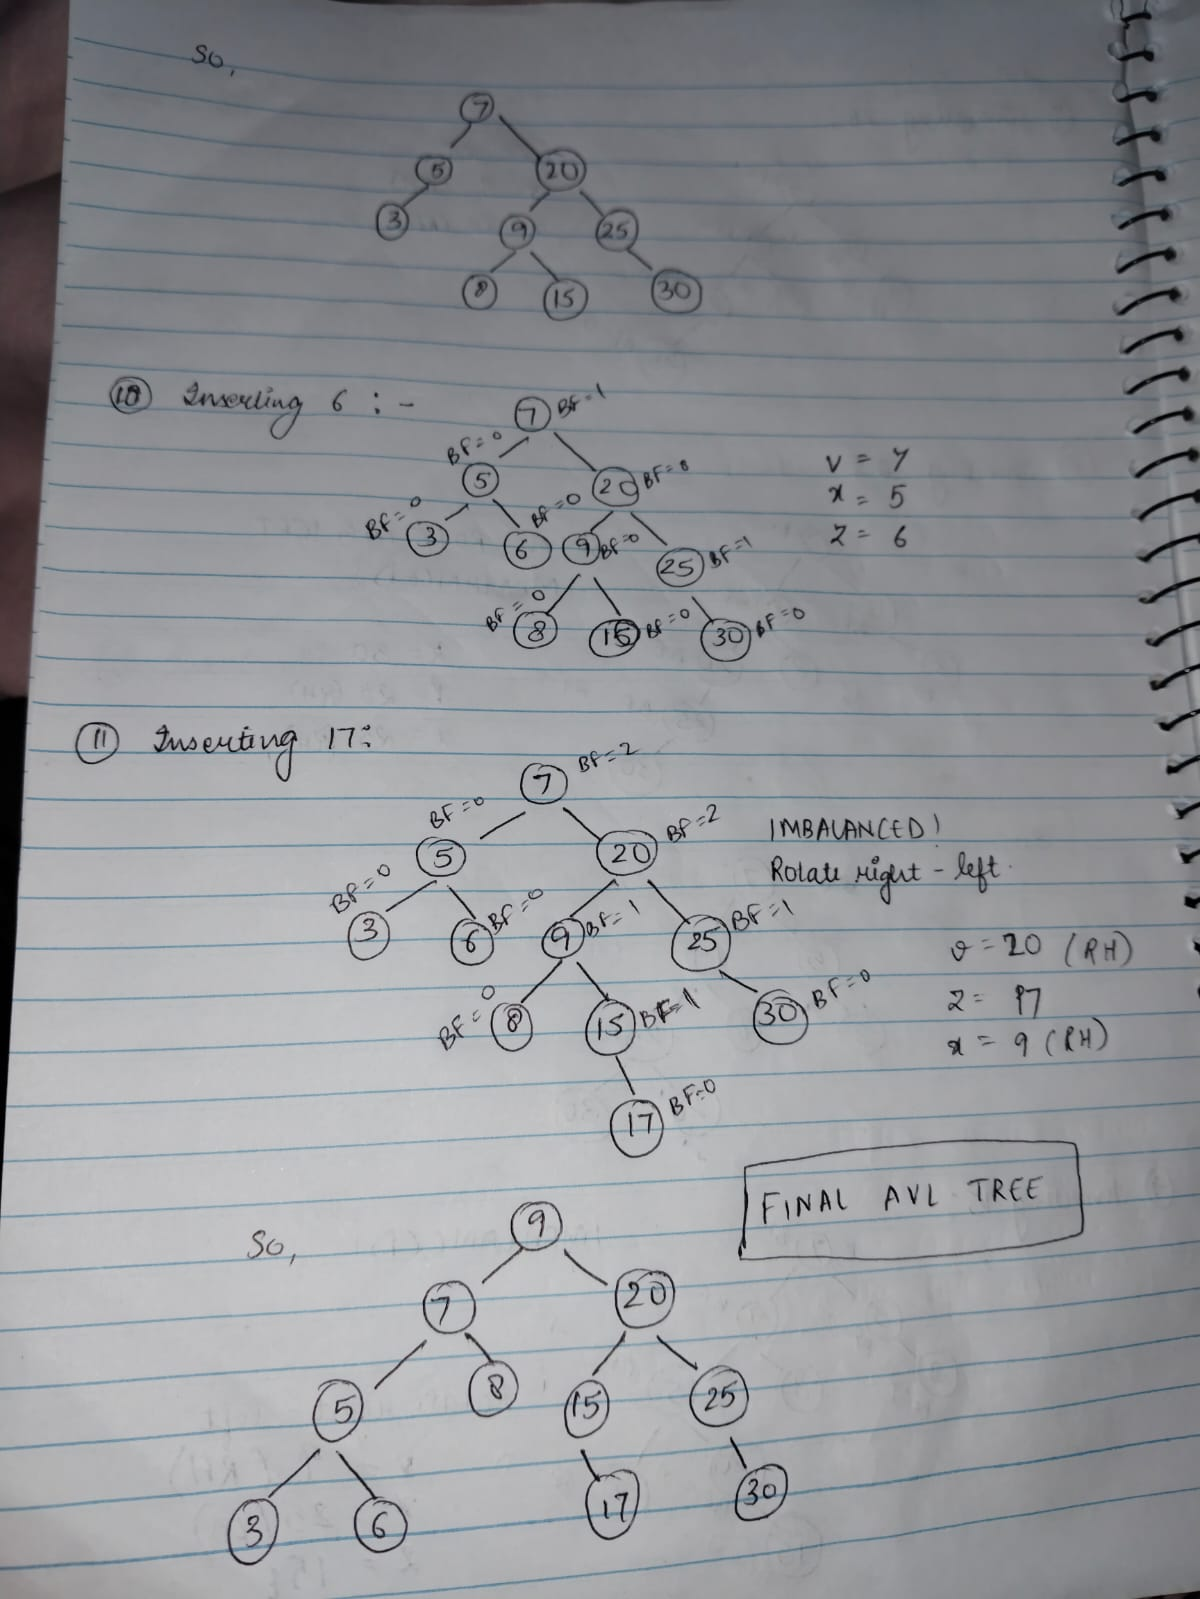 So,
7
5 20
3 9 25
8 15 30
10 Inserting 6 : -
7 BF=1
BF=0 5 20 BF=0
BF=0 3 6 BF=0 9 BF=0 25 BF=1
BF=0 8 15 BF=0 30 BF=0
v = 7
x = 5
z = 6
11 Inserting 17:
7 BF=2
BF=0 5 20 BF=2
BF=0 3 6 BF=0 9 BF=1 25 BF=1
BF=0 8 15 BF=1 30 BF=0
17 BF=0
IMBALANCED!
Rotate right - left.
v = 20 (RH)
z = 17
x = 9 (RH)
FINAL AVL TREE
So,
9
7 20
5 8 15 25
3 6 17 30